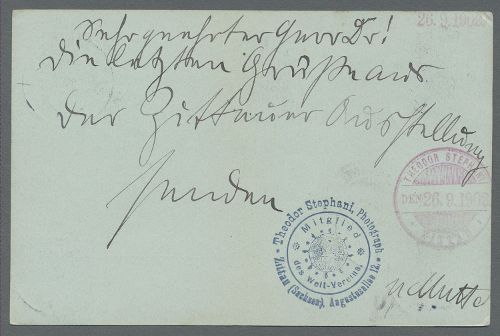 26.9.1902
Sehr geehrter Herr Dr!
die letzten Grüße aus
der Zittauer Ausstellung
senden
THEODOR STEPHANI
DEN 26.9.1902
ZITTAU
Theodor Stephani, Photograph
Zittau (Sachsen), Augustusallee 12.
Mitglied
des Welt-Vereins.
u Mutter